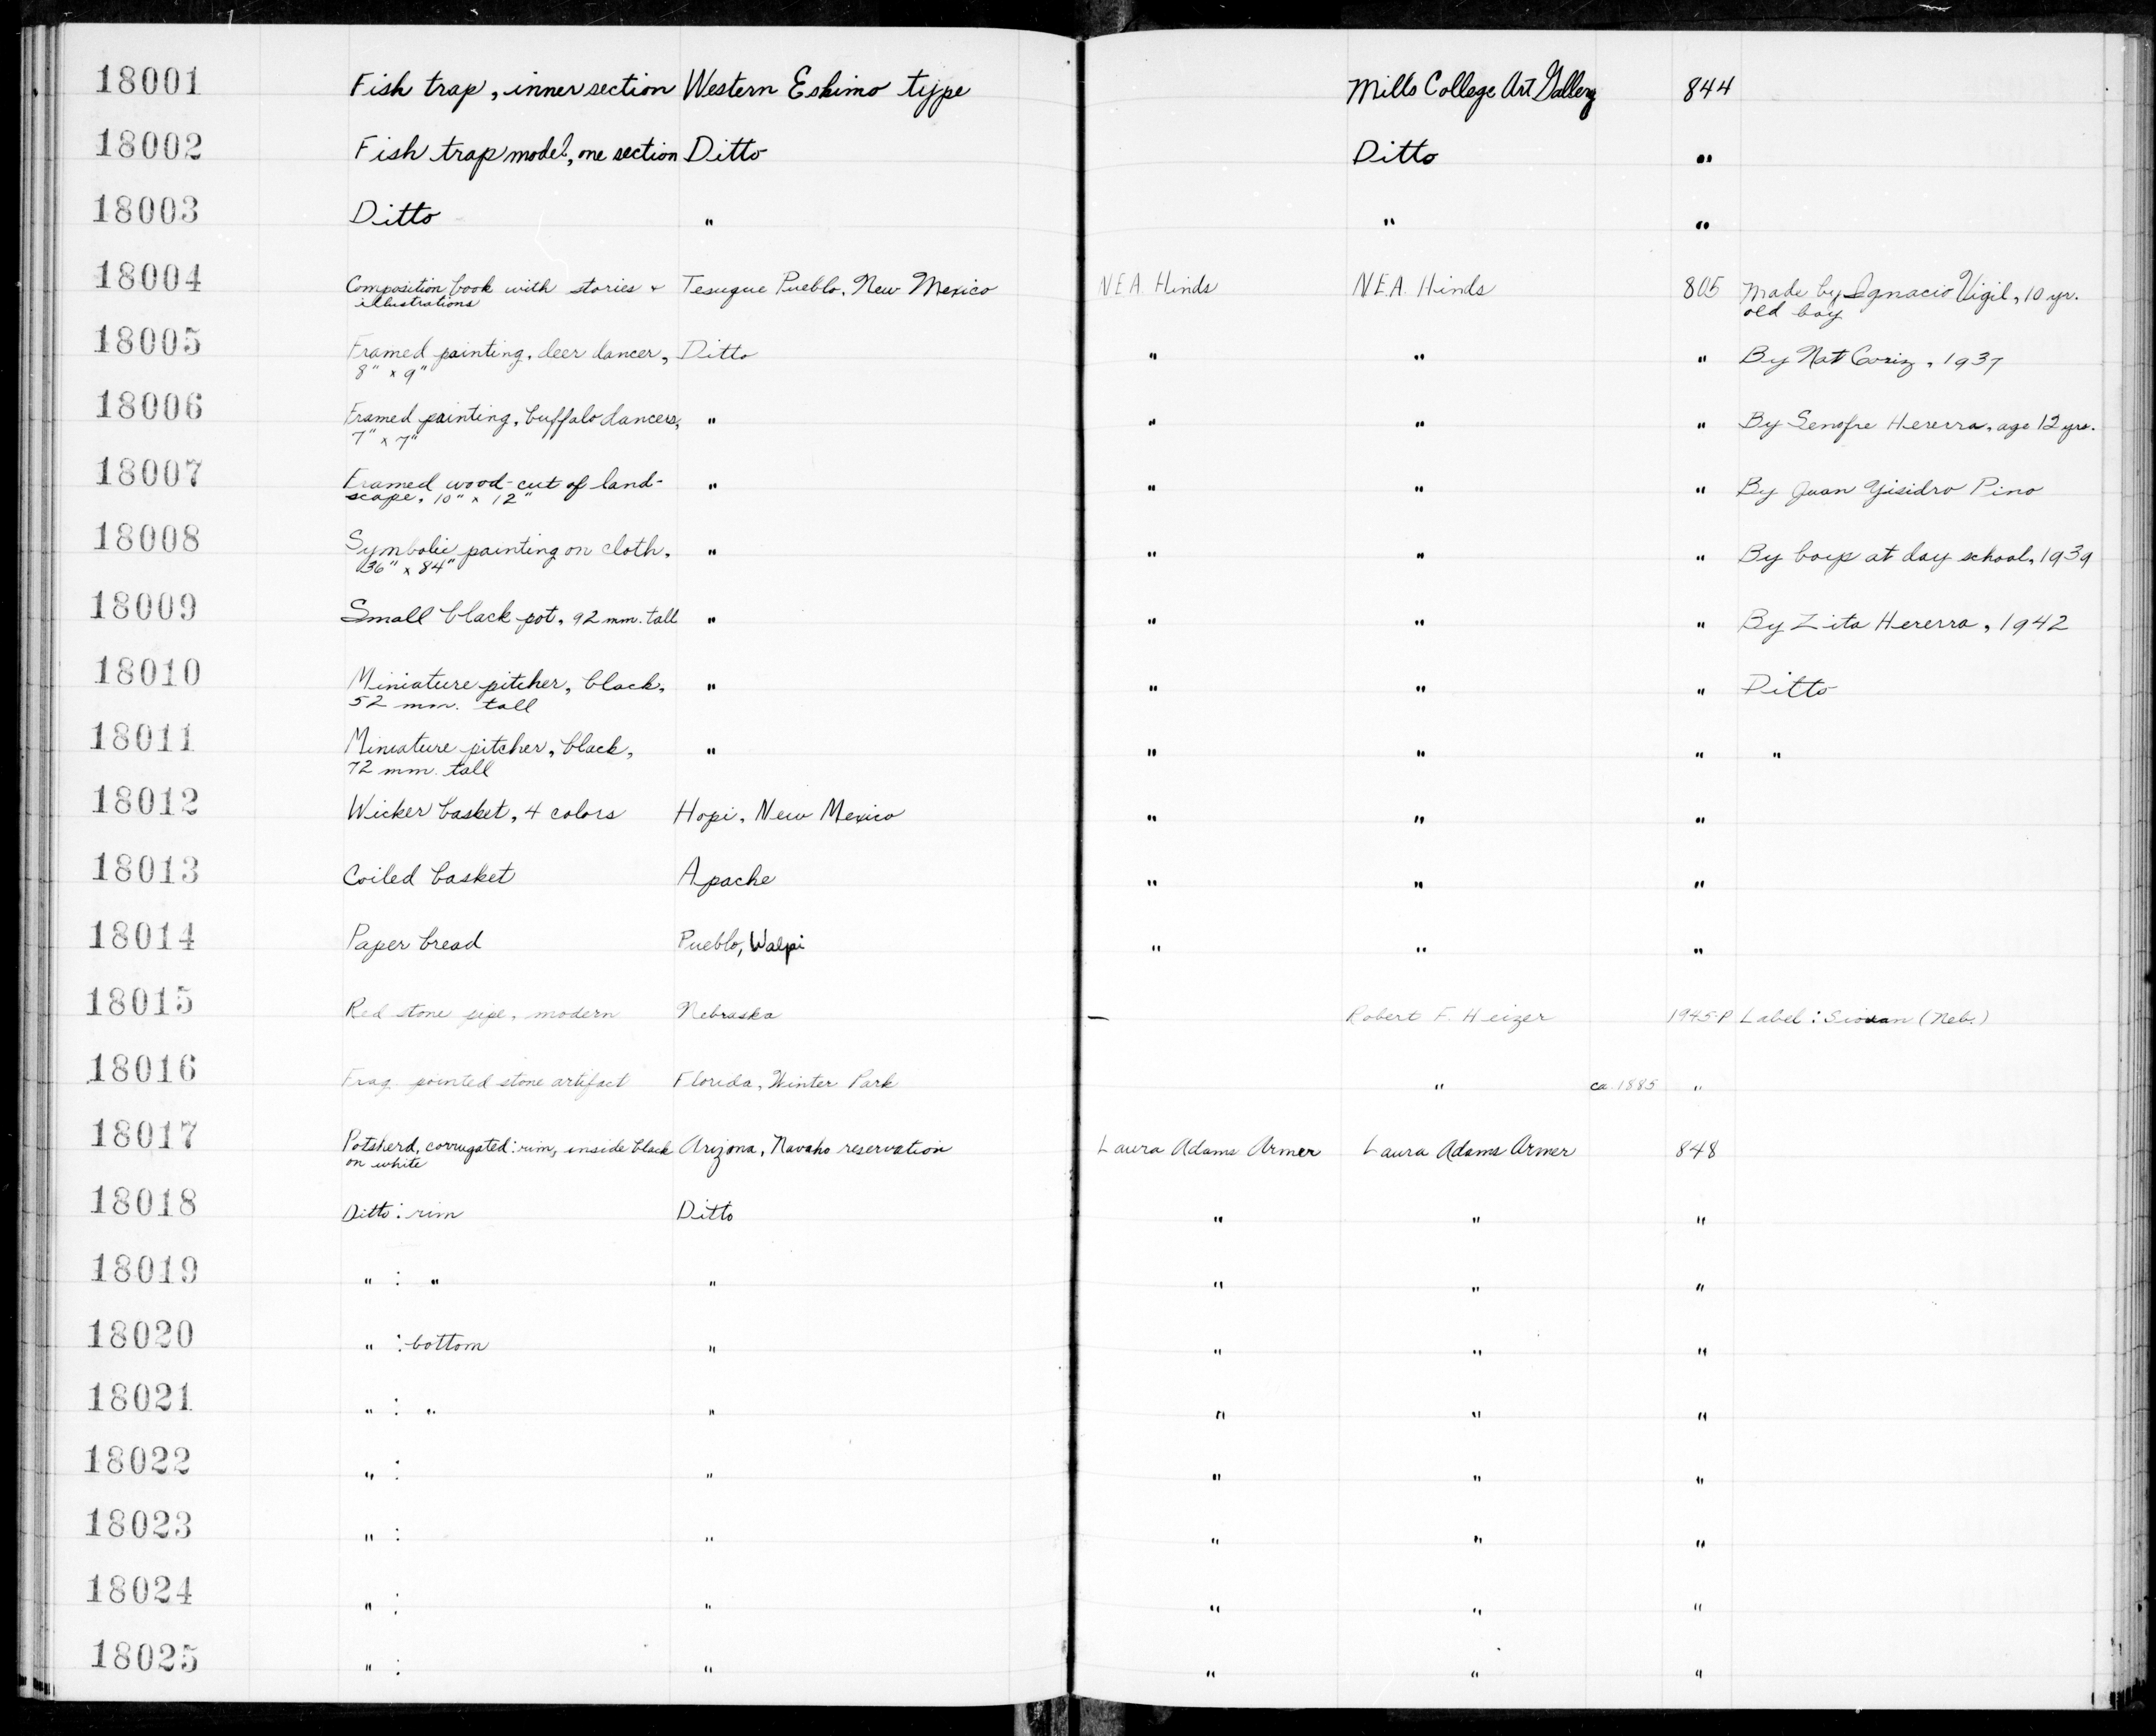 18001 Fish trap, inner section Western Eskimo type Mills College Art Gallery 844
18002 Fish trap model, one section Ditto Ditto "
18003 Ditto " " "
18004 Composition book with stories + Tesuque Pueblo, New Mexico N.E.A. Hinds N.E.A. Hinds 805 Made by Ignacio Vigil, 10 yr.
illustrations old boy
18005 Framed painting, deer dancer, Ditto " " " By Nat Coriz, 1937
8" x 9"
18006 Framed painting, buffalo dancers, " " " " By Senofre Hererra, age 12 yrs.
7" x 7"
18007 Framed wood-cut of land- " " " " By Juan Yisidro Pino
scape, 10" x 12"
18008 Symbolic painting on cloth, " " " " By boys at day school, 1939
36" x 84"
18009 Small black pot, 92 mm. tall " " " " By Zita Hererra, 1942
18010 Miniature pitcher, black, " " " " Ditto
52 mm. tall
18011 Miniature pitcher, black, " " " " "
72 mm. tall
18012 Wicker basket, 4 colors Hopi, New Mexico " " "
18013 Coiled basket Apache " " "
18014 Paper bread Pueblo, Walpi " " "
18015 Red stone pipe, modern Nebraska — Robert F. Heizer 1945-P Label: Siouan (Neb.)
18016 Frag. pointed stone artifact Florida, Winter Park " ca. 1885 "
18017 Potsherd, corrugated: rim, inside black Arizona, Navaho reservation Laura Adams Armer Laura Adams Armer 848
on white
18018 Ditto: rim Ditto " " "
18019 " : " " " " "
18020 " : bottom " " " "
18021 " : " " " " "
18022 " : " " " "
18023 " : " " " "
18024 " : " " " "
18025 " : " " " "